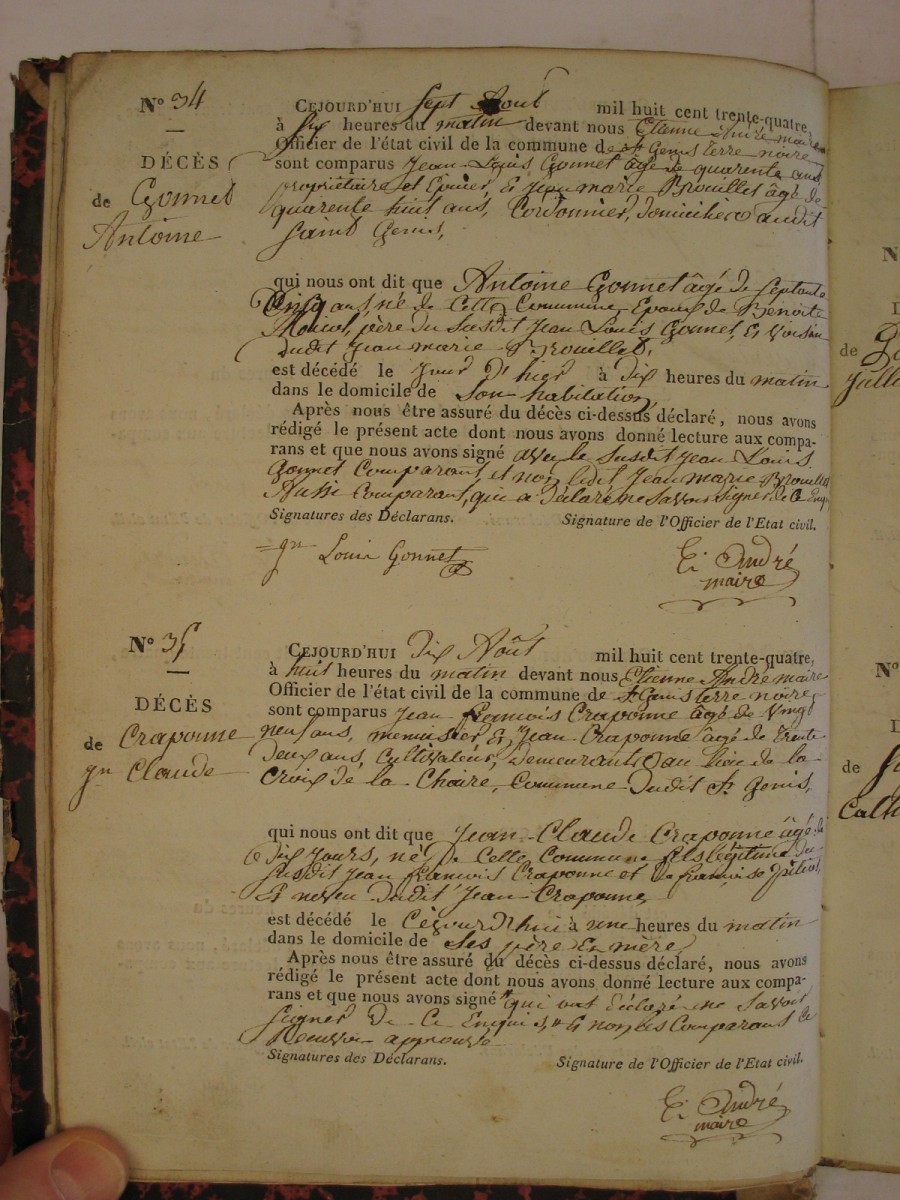 N.º 34
—
DÉCÈS
de Gonnet
Antoine
CEJOURD'HUI sept Aout mil huit cent trente-quatre,
à dix heures du matin devant nous Etienne André maire
Officier de l'état civil de la commune de St Genis terre noire
sont comparus Jean-Louis Gonnet âgé de quarente ans
propriétaire et Epicier, Et Jean marie Brouillet âgé de
quarente huit ans, Cordonnier, domiciliers audit
Saint Genis,
qui nous ont dit que Antoine Gonnet âgé de septante
Cinq ans, né de Cette Commune, Epoux de Benoite
père du susdit Jean Louis Gonnet, Et voisin
dudit Jean marie Brouillet,
est décédé le Jour d'hier à dix heures du matin
dans le domicile de son habitation,
Après nous être assuré du décès ci-dessus déclaré, nous avons
rédigé le présent acte dont nous avons donné lecture aux compa-
rans et que nous avons signé avec le susdit Jean Louis
Gonnet Comparant, et non ledit Jean marie Brouillet
Aussi Comparant, qui a déclaré ne savoir signer de Ce Enquis
Signatures des Déclarans. Signature de l'Officier de l'Etat civil.
jn Louis Gonnet
Et. André
maire
N.º 35
—
DÉCÈS
de Craponne
jn Claude
CEJOURD'HUI dix Août mil huit cent trente-quatre,
à huit heures du matin devant nous Etienne André maire
Officier de l'état civil de la commune de St Genis terre noire
sont comparus Jean françois Craponne âgé de vingt
neuf ans, menuisier Et Jean Craponne âgé de trente
deux ans, Cultivateur, demeurants au lieu de la
Croix de la Chaire, Commune dudit St Genis,
qui nous ont dit que Jean-Claude Craponne âgé de
dix Jours, né de Cette Commune fils légitime du
susdit Jean françois Craponne et de françoise
Et neveu dudit Jean Craponne,
est décédé le Cejourd'hui à une heures du matin
dans le domicile de ses père Et mère
Après nous être assuré du décès ci-dessus déclaré, nous avons
rédigé le présent acte dont nous avons donné lecture aux compa-
rans et que nous avons signé qui ont déclaré ne savoir
signer de Ce Enquis, Et non les Comparants le
Renvoi approuvé
Signatures des Déclarans. Signature de l'Officier de l'Etat civil.
Et. André
maire
N
de
Jull
N.º
de
Cath